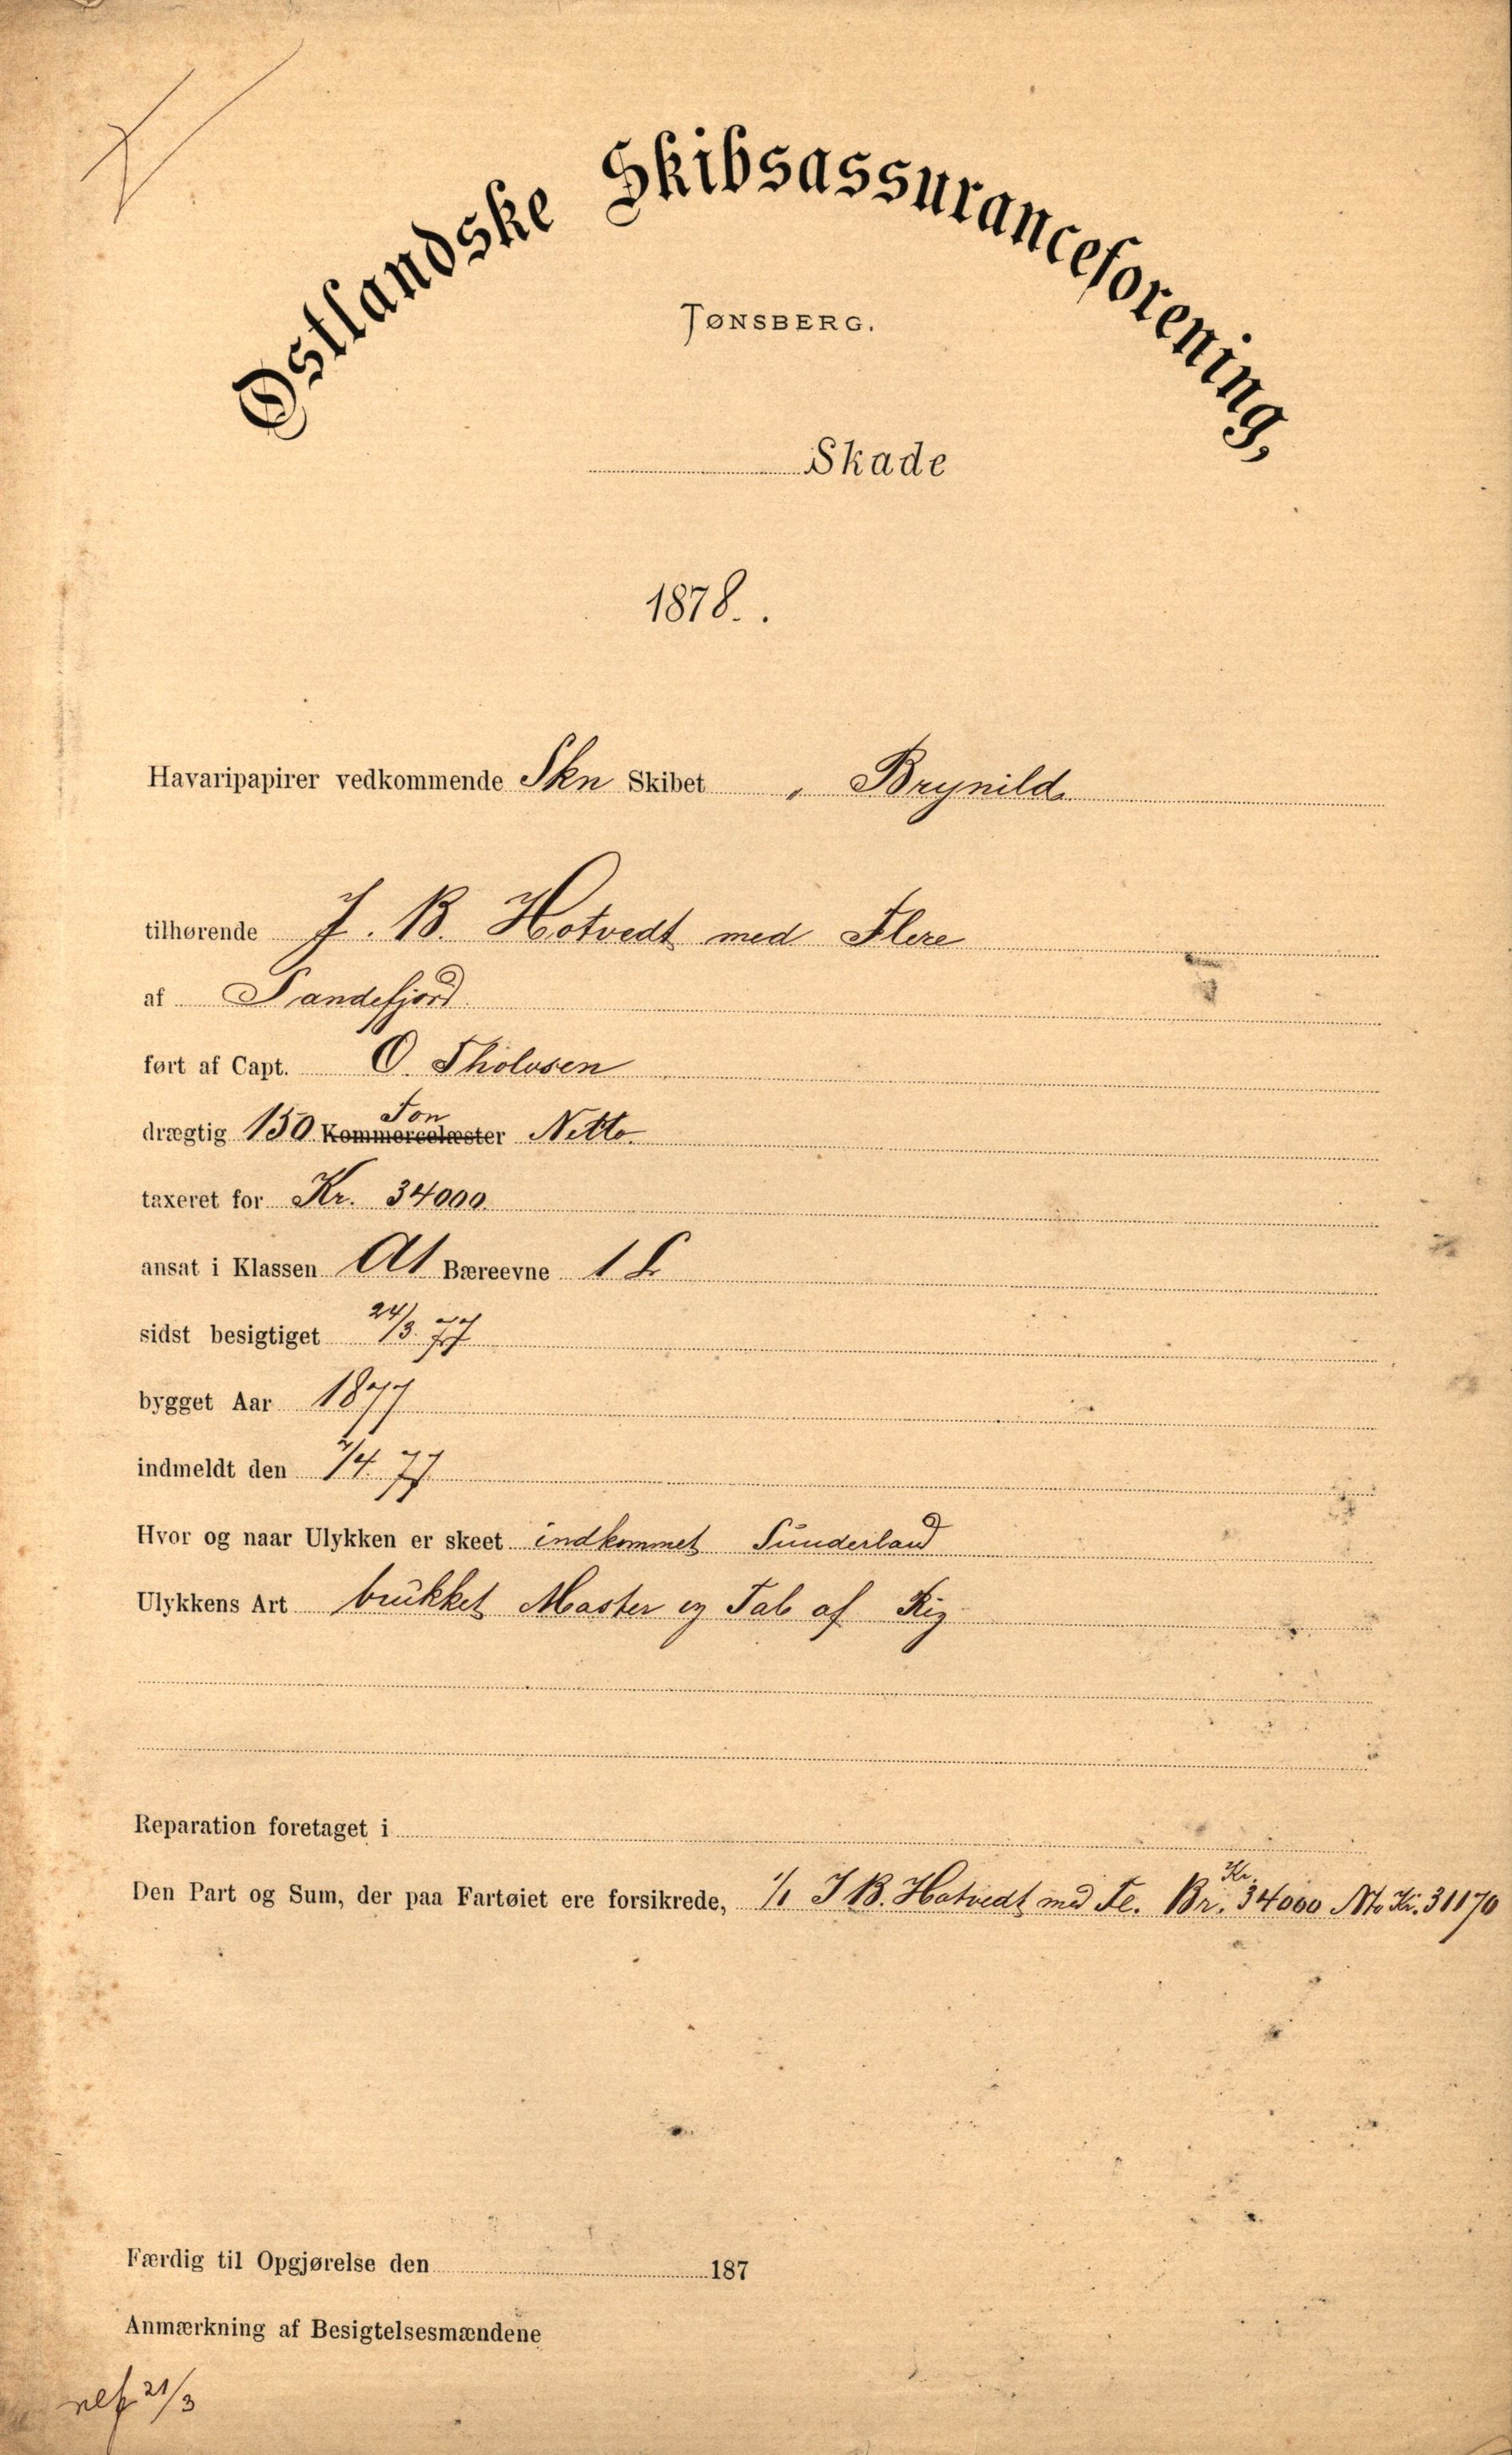 Østlandske Skibsassuranceforening,
TØNSBERG.
Skade
1878.
Havaripapirer vedkommende Skn Skibet „ Brynild
tilhørende J. B. Hotvedt med Flere
af Sandefjord
ført af Capt. O. Tholvsen
Ton
drægtig 150 Kommercelæster Netto
taxeret for Kr. 34000
ansat i Klassen A1 Bæreevne 1
sidst besigtiget 24/3 77
bygget Aar 1877
indmeldt den /4 77
Hvor og naar Ulykken er skeet indkommet Sunderland
Ulykkens Art brukket Master og Tab af Rig
Reparation foretaget i
Kr.
Den Part og Sum, der paa Fartøiet ere forsikrede, 1/1 J B. Hotvedt med Fl. Br. 34000 Nto Kr. 31170
Færdig til Opgjørelse den 187
Anmærkning af Besigtelsesmændene
21/3